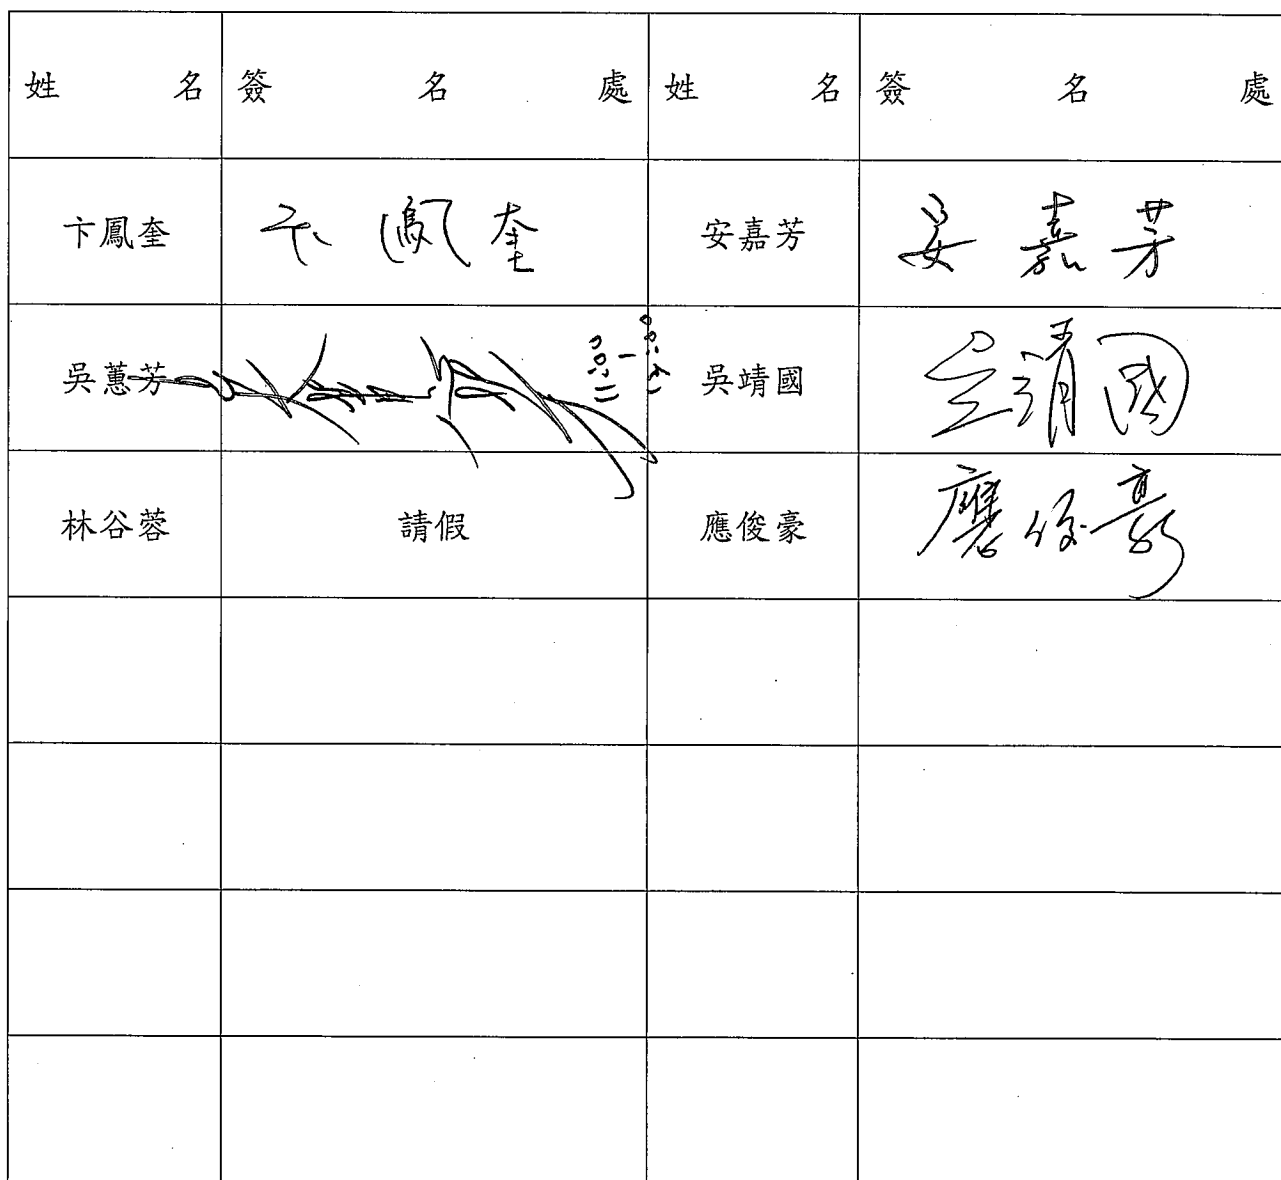 姓名 簽名處 姓名 簽名處
卞鳳奎 卞鳳奎 安嘉芳 安嘉芳
吳蕙芳 吳靖國 吳靖國
林谷蓉 請假 應俊豪 應俊豪